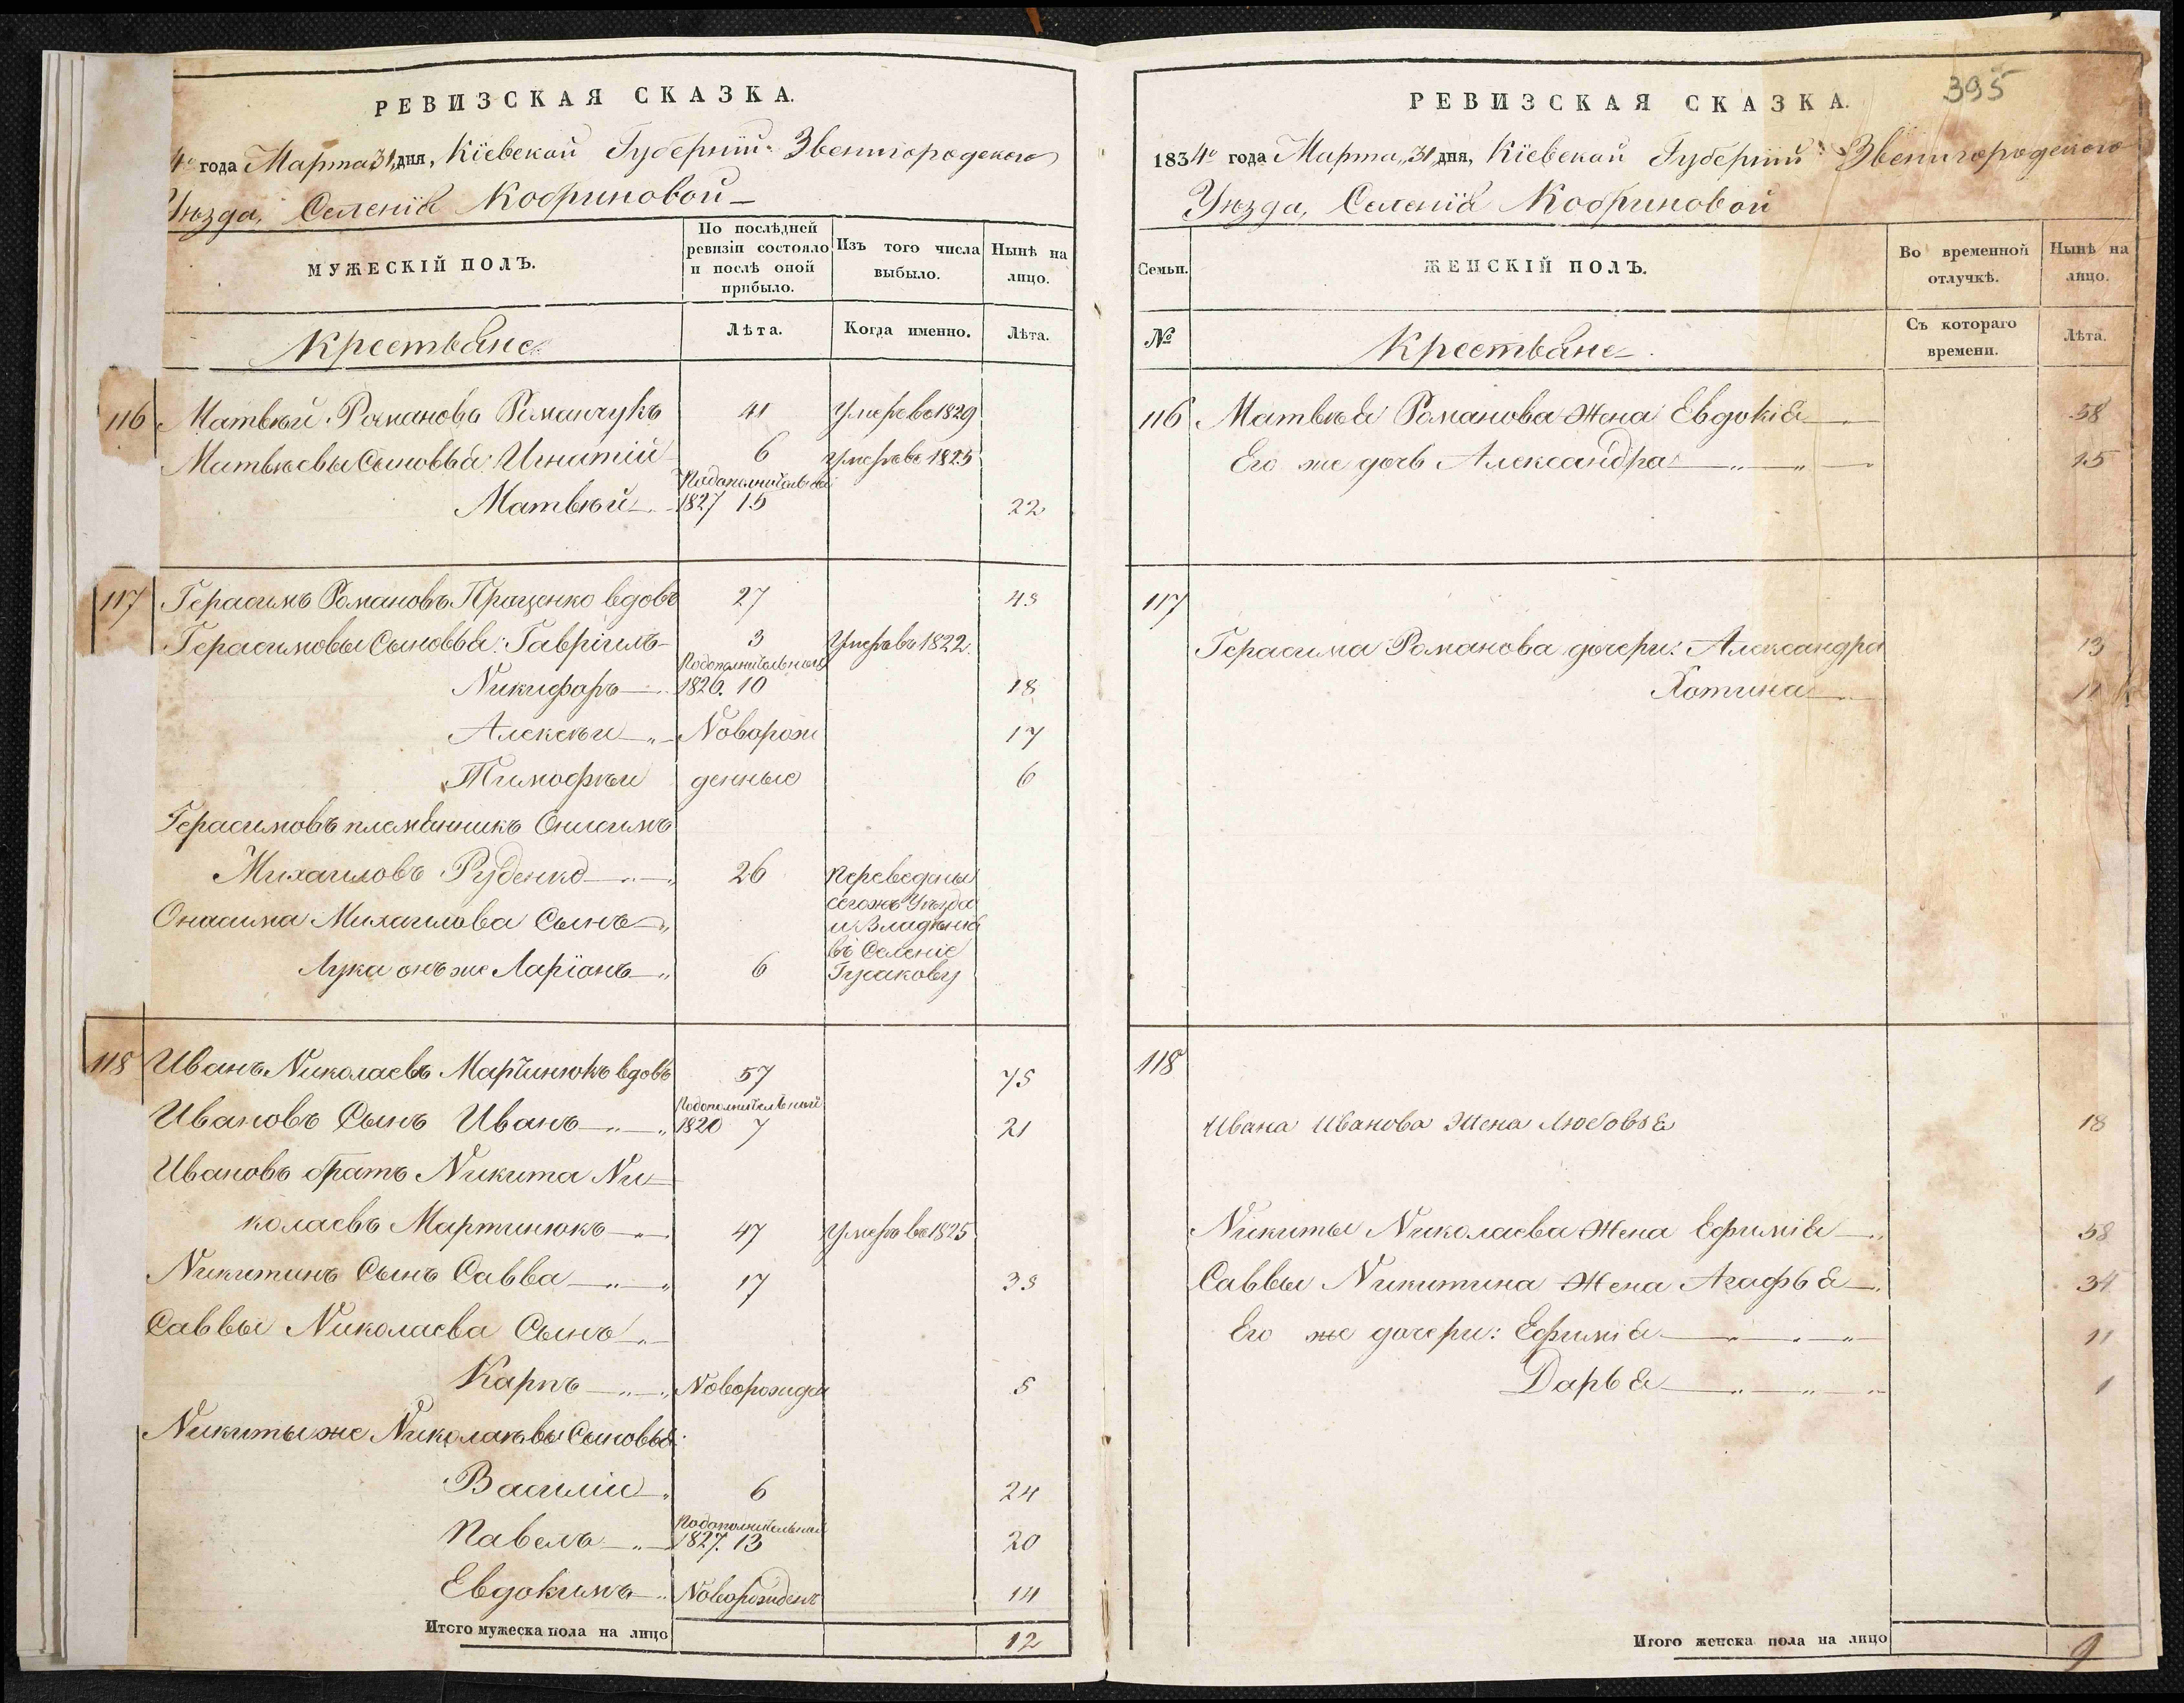 РЕВИЗСКАЯ СКАЗКА.
4º года Марта 31 дня, Кіевской Губерніи Звенигородскаго
Уѣзда, Селенія Кобриновой
МУЖЕСКІЙ ПОЛЪ.
По послѣдней ревизіи состояло и послѣ оной прибыло.
Изъ того числа выбыло.
Нынѣ на лицо.
Крестьяне
Лѣта.
Когда именно.
Лѣта.
116 Матвѣй Романовъ Романчукъ 41 Умеръ въ 1829
Матвѣевы Сыновья: Игнатій 6 Умеръ въ 1825
Подополнительной
Матвѣй 1827 15 22
117 Герасимъ Романовъ Проценко вдовъ 27 43
Герасимовы Сыновья: Гавріилъ 3 Умеръ въ 1822.
Подополнительной
Никифоръ 1826. 10 18
Алексѣи Новорож 17
Тимофѣи денные 6
Герасимовъ племянникъ Онисимъ
Михаиловъ Руденко 26 Переведены
сегожъ Уѣзда
Онисима Михаилова Сынъ и Владѣнія
въ Селеніе
Лука онъ же Ларіонъ 6 Гусакову
118 Иванъ Николаевъ Мартинюкъ вдовъ 57 75
Подополнительной
Ивановъ Сынъ Иванъ 1820 7 21
Ивановъ братъ Никита Ни
колаевъ Мартинюкъ 47 Умеръ въ 1825
Никитинъ Сынъ Савва 17 33
Саввы Николаева Сынъ
Карпъ Новорожден 5
Никиты же Николаевы Сыновья:
Василіи 6 24
Подополнительной
Павелъ 1827. 13 20
Евдокимъ Новорожденъ 14
Итого мужеска пола на лицо 12
395
РЕВИЗСКАЯ СКАЗКА.
1834º года Марта, 31 дня, Кіевской Губерніи Звенигородскаго
Уѣзда, Селенія Кобриновой
Семьи.
ЖЕНСКІЙ ПОЛЪ.
Во временной отлучкѣ.
Нынѣ на лицо.
№
Крестьяне
Съ котораго времени.
Лѣта.
116 Матвѣя Романова Жена Евдокія 58
Его же дочь Александра 15
117
Герасима Романова дочери: Александра 13
Хотина
118
Ивана Иванова Жена Любовья 18
Никиты Николаева Жена Ефимія 58
Саввы Никитина Жена Агафья 34
Его же дочери: Ефимія 11
Дарья 1
Итого женска пола на лицо 9